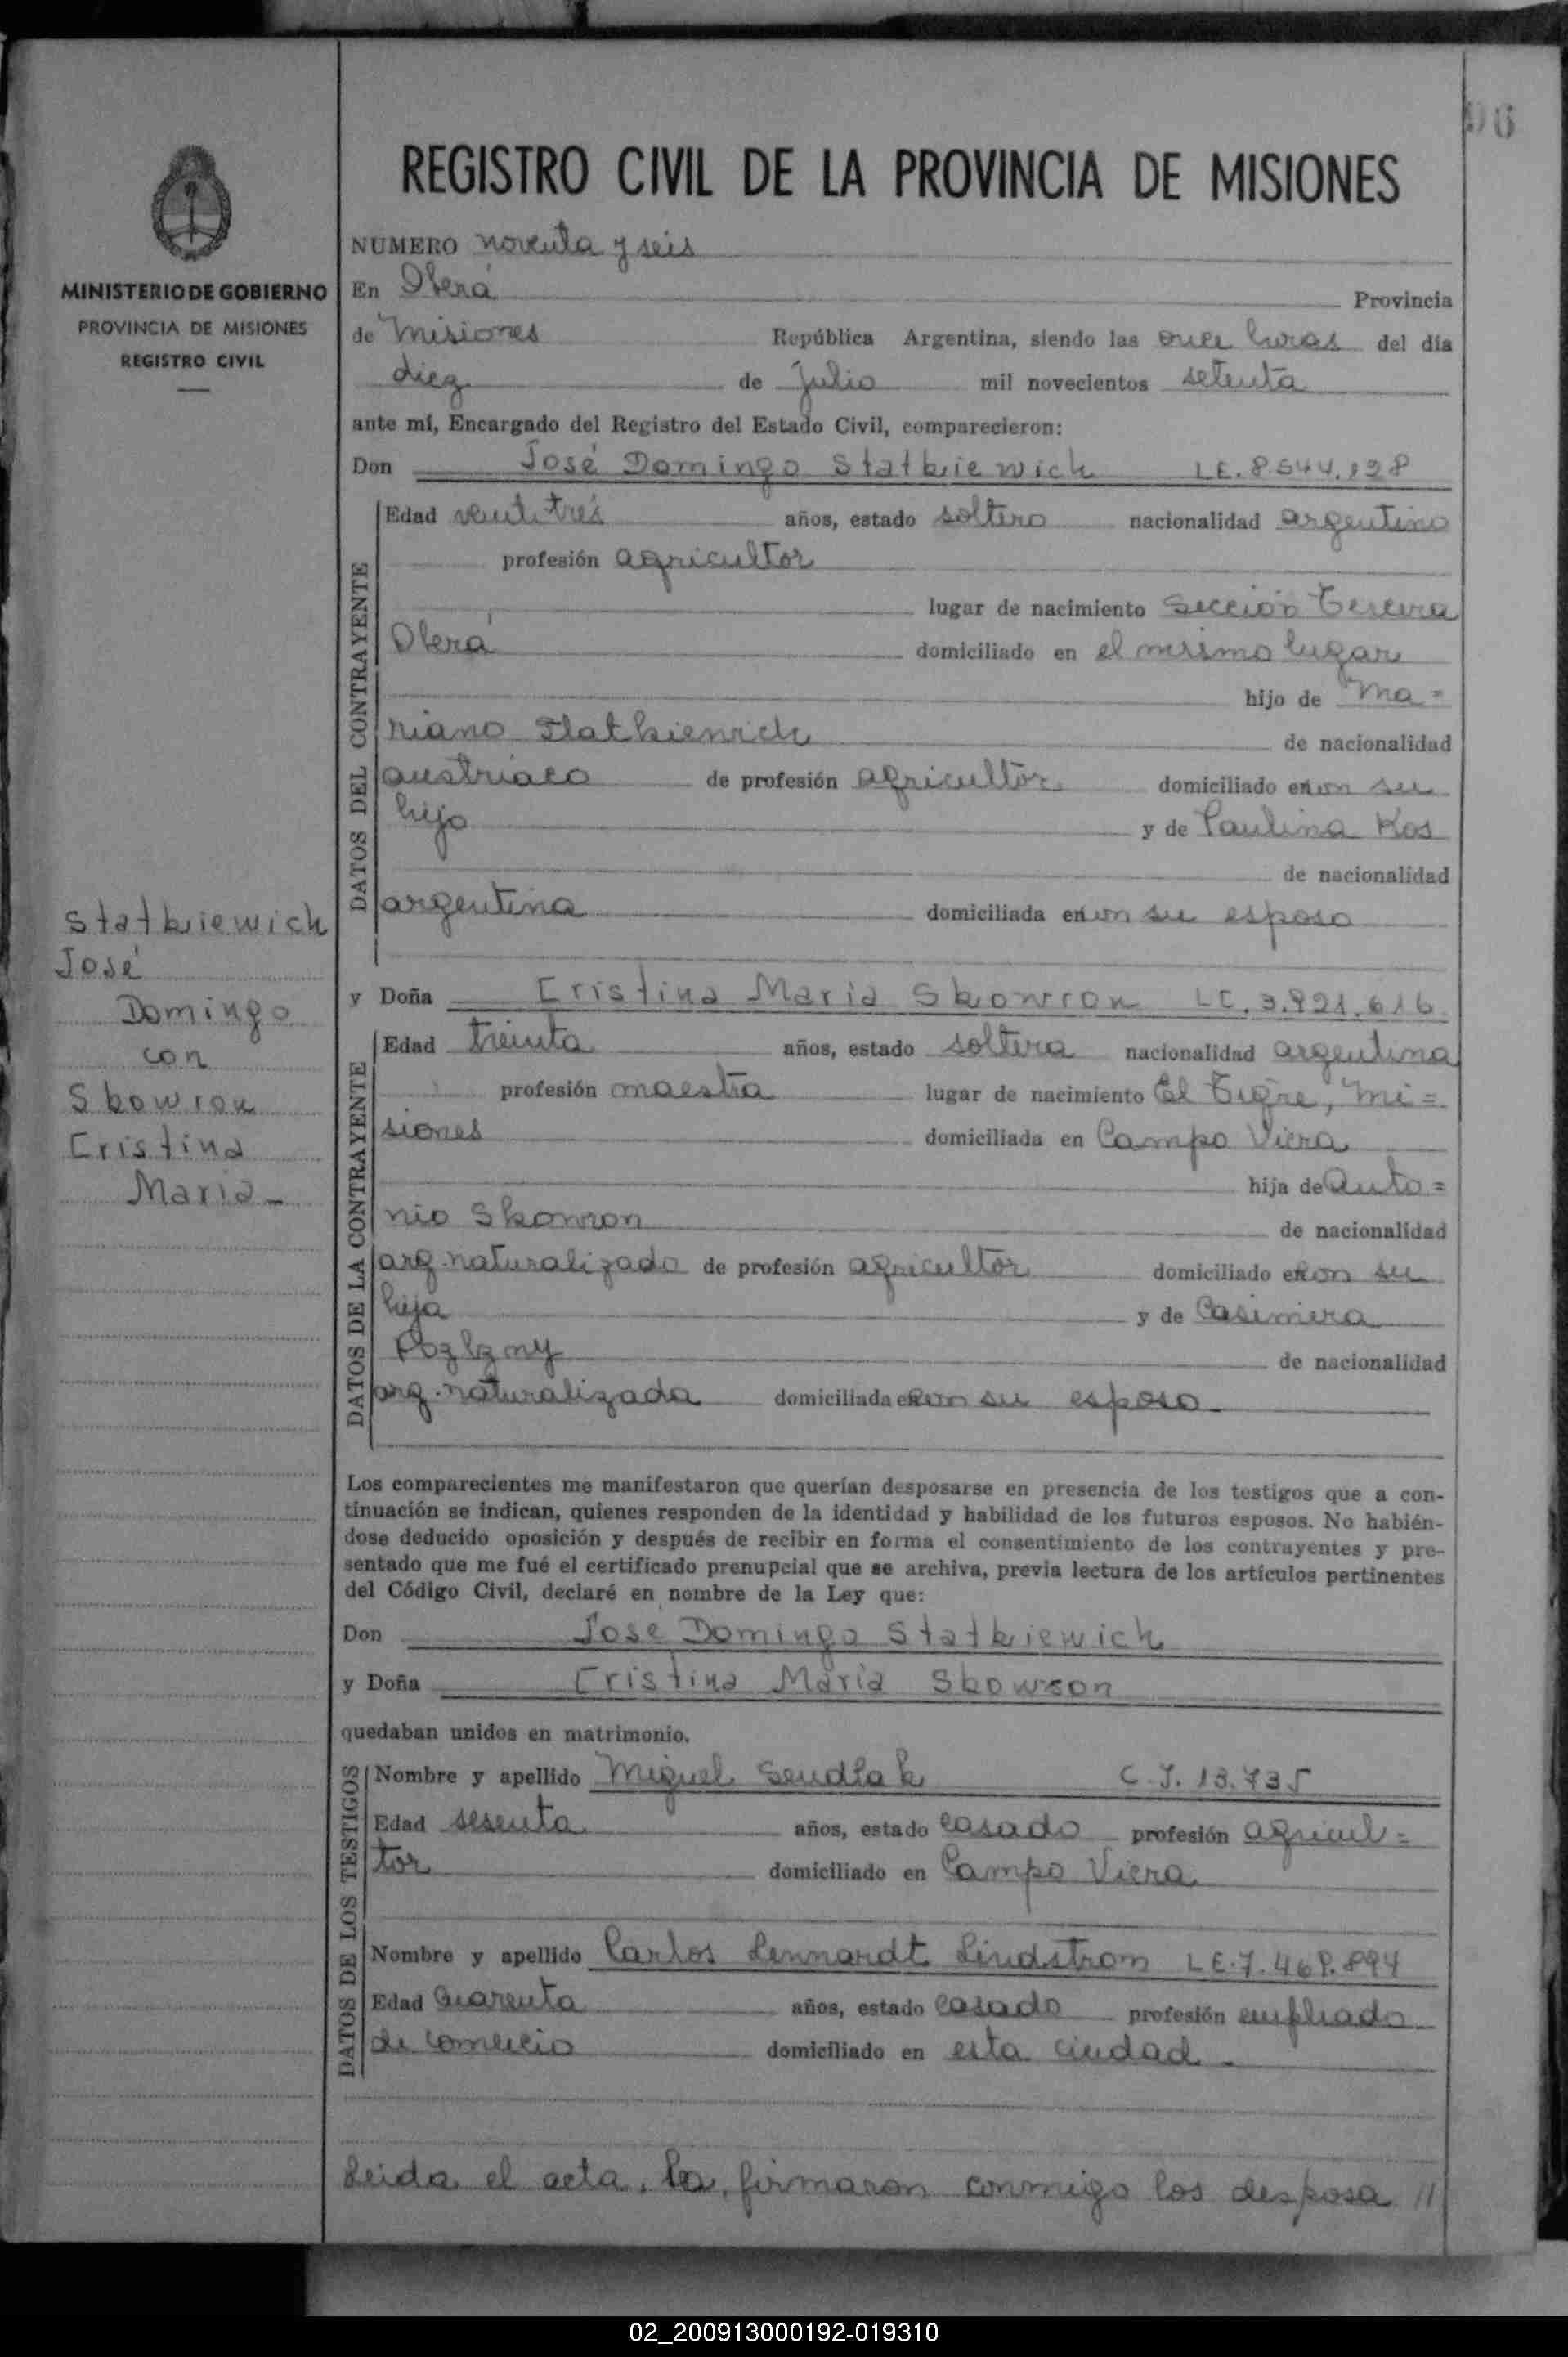 96
REGISTRO CIVIL DE LA PROVINCIA DE MISIONES
MINISTERIO DE GOBIERNO
PROVINCIA DE MISIONES
REGISTRO CIVIL
NUMERO noventa y seis
En Oberá Provincia
de Misiones República Argentina, siendo las once horas del día
diez de Julio mil novecientos setenta
ante mí, Encargado del Registro del Estado Civil, comparecieron:
Don José Domingo Statkiewich LE. 8.544.128
DATOS DEL CONTRAYENTE
Edad veintitrés años, estado soltero nacionalidad argentino
profesión agricultor
lugar de nacimiento Sección Tercera
Oberá domiciliado en el mismo lugar
hijo de Ma=
riano Statkiewich de nacionalidad
austriaco de profesión agricultor domiciliado en con su
hijo y de Paulina Kos
de nacionalidad
argentina domiciliada en con su esposo
Statkiewich
José
Domingo
con
Skowron
Cristina
Maria-
y Doña Cristina Maria Skowron LC. 3.921.616
DATOS DE LA CONTRAYENTE
Edad treinta años, estado soltera nacionalidad argentina
profesión maestra lugar de nacimiento El Tigre, Mi=
siones domiciliada en Campo Viera
hija de Anto=
nio Skowron de nacionalidad
arg. naturalizado de profesión agricultor domiciliado en con su
hija y de Casimira
de nacionalidad
arg. naturalizada domiciliada en con su esposo
Los comparecientes me manifestaron que querían desposarse en presencia de los testigos que a con-
tinuación se indican, quienes responden de la identidad y habilidad de los futuros esposos. No habién-
dose deducido oposición y después de recibir en forma el consentimiento de los contrayentes y pre-
sentado que me fué el certificado prenupcial que se archiva, previa lectura de los artículos pertinentes
del Código Civil, declaré en nombre de la Ley que:
Don José Domingo Statkiewich
y Doña Cristina Maria Skowron
quedaban unidos en matrimonio.
DATOS DE LOS TESTIGOS
Nombre y apellido Miguel Sendlak C.I. 13.735
Edad sesenta años, estado casado profesión agricul=
tor domiciliado en Campo Viera
Nombre y apellido Carlos Lennardt Lindstrom LE. 7.468.894
Edad cuarenta años, estado casado profesión empleado
de comercio domiciliado en esta ciudad.
Leida el acta, la firmaron conmigo los desposa //
02_200913000192-019310